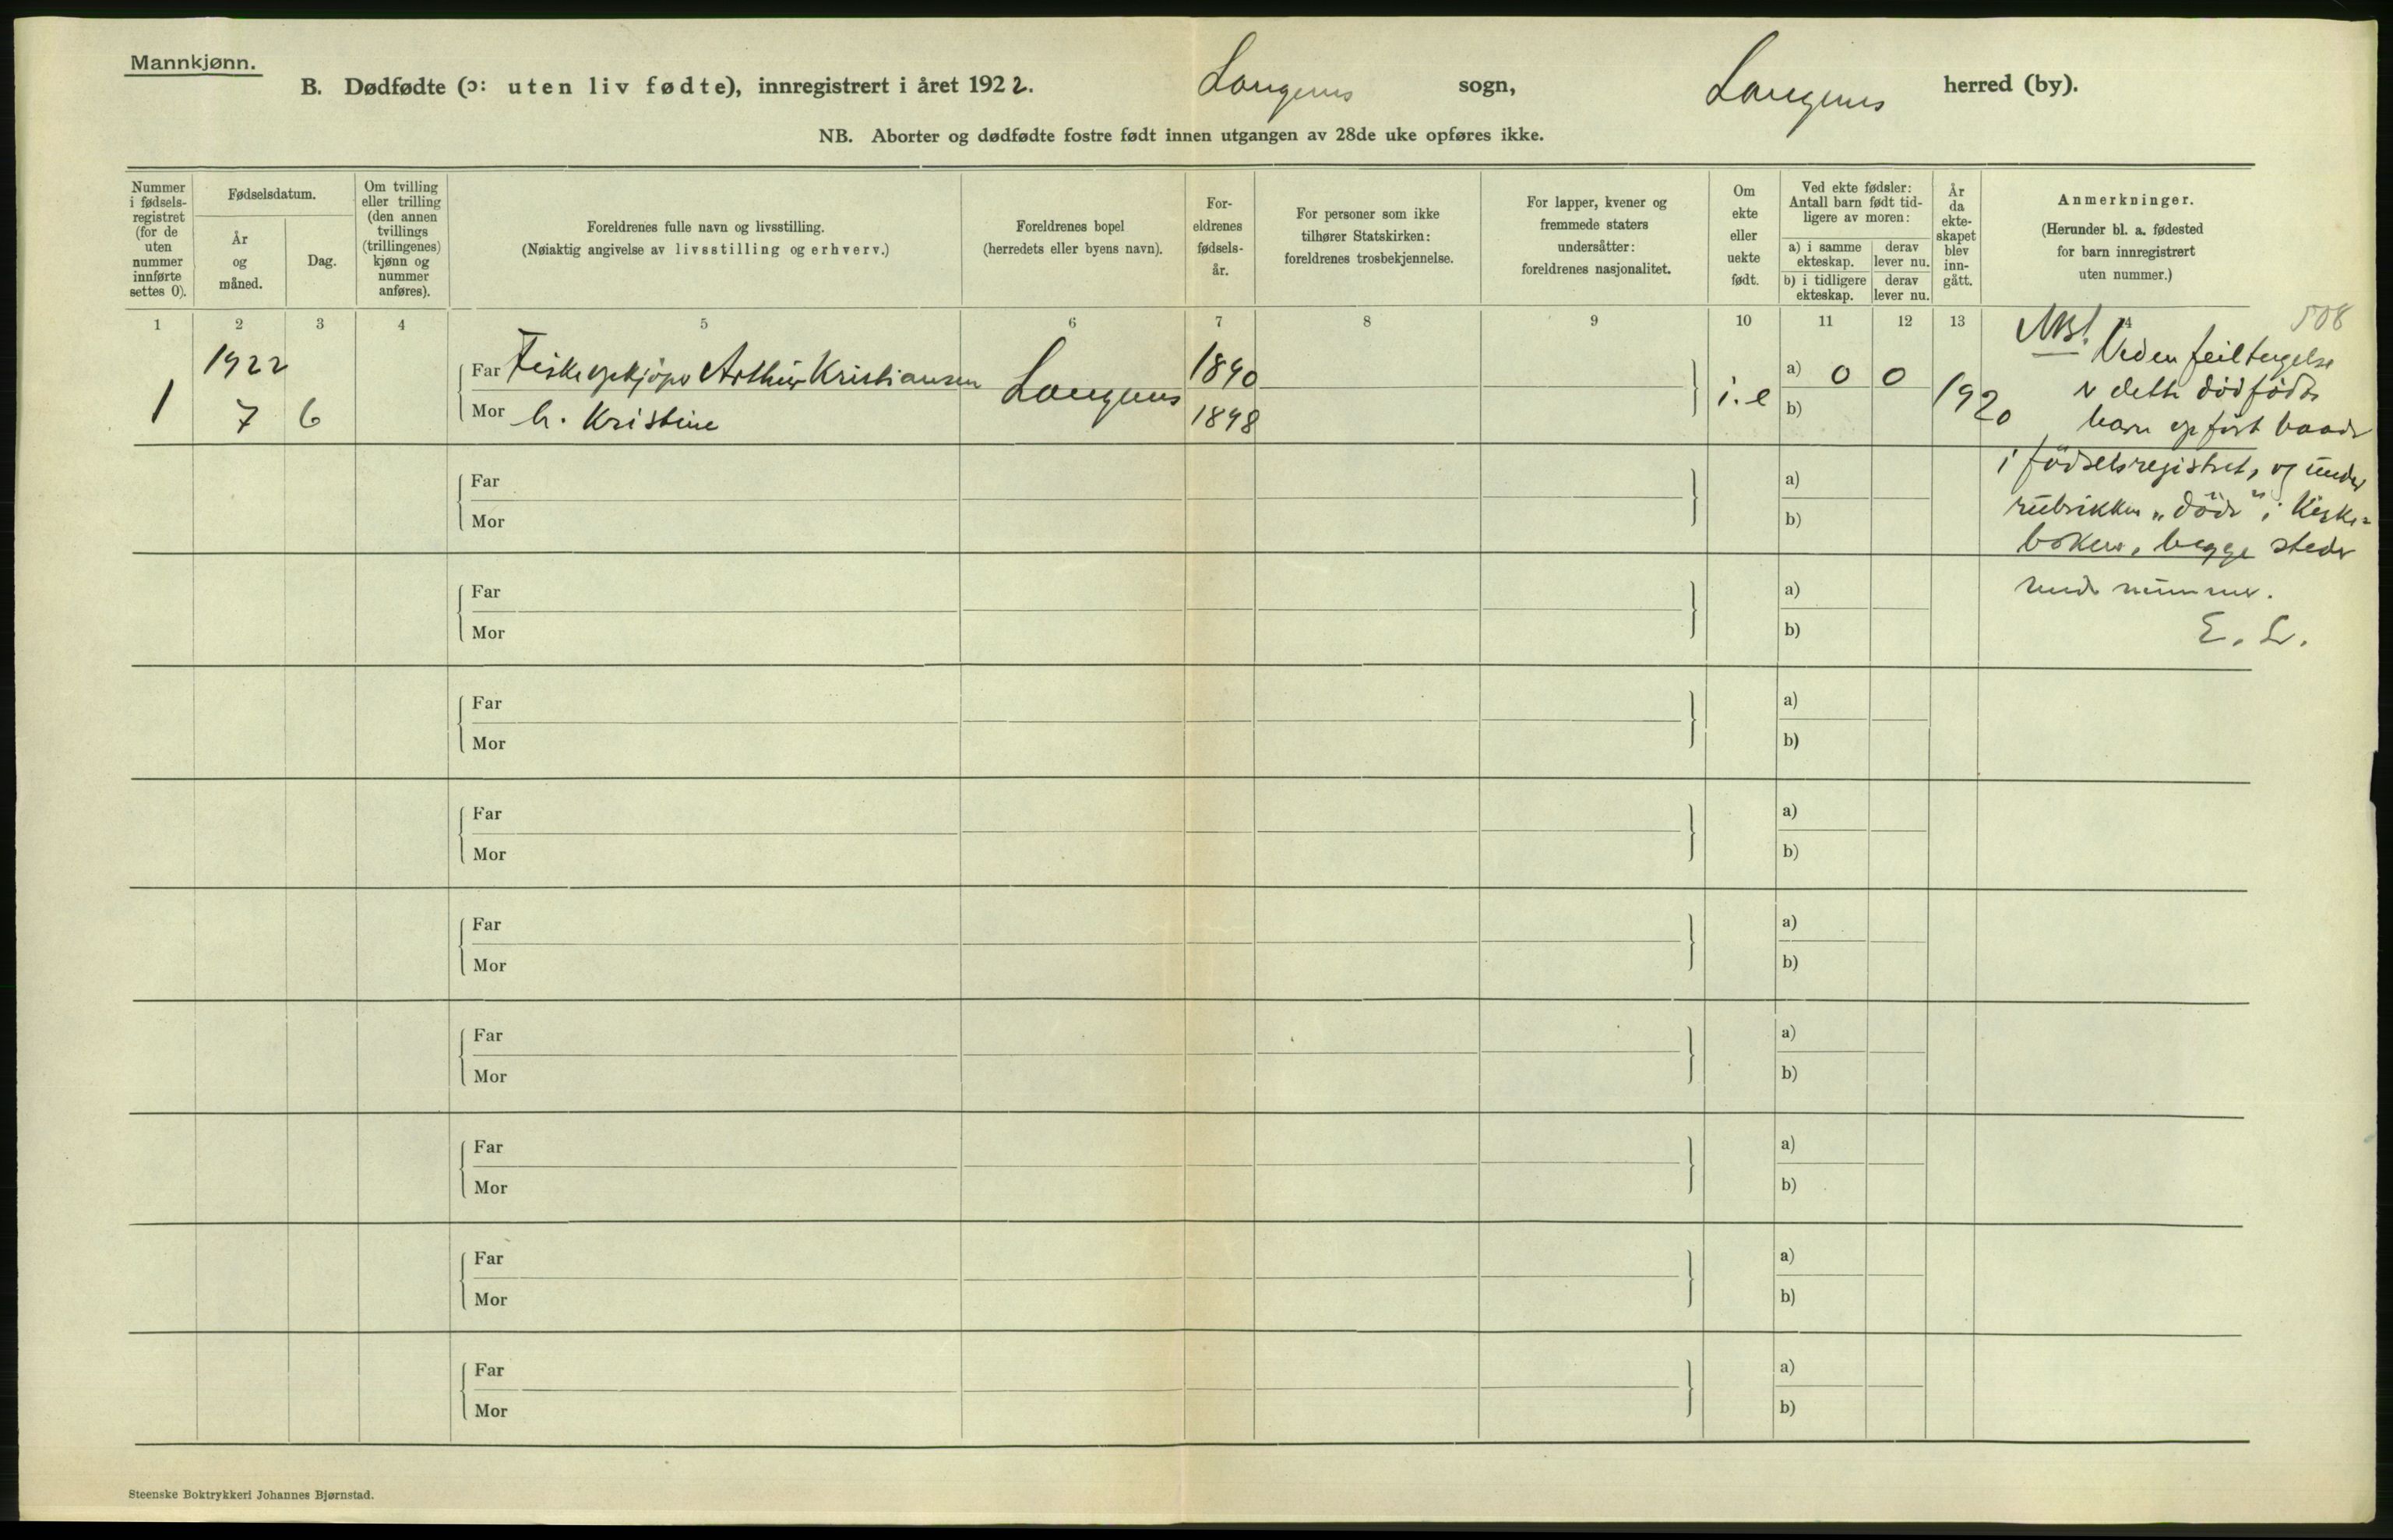 Mannkjønn.
B. Dødfødte (ɔ: uten liv fødte), innregistrert i året 1922. Langenes sogn, Langenes herred (by).
NB. Aborter og dødfødte fostre født innen utgangen av 28de uke opføres ikke.
Nummer i fødsels-registret (for de uten nummer innførte settes 0).
Fødselsdatum.
År og måned.
Dag.
Om tvilling eller trilling (den annen tvillings (trillingenes) kjønn og nummer anføres).
Foreldrenes fulle navn og livsstilling.
(Nøiaktig angivelse av livsstilling og erhverv.)
Foreldrenes bopel
(herredets eller byens navn).
For-eldrenes fødsels-år.
For personer som ikke tilhører Statskirken: foreldrenes trosbekjennelse.
For lapper, kvener og fremmede staters undersåtter: foreldrenes nasjonalitet.
Om ekte eller uekte født.
Ved ekte fødsler: Antall barn født tid-ligere av moren:
a) i samme ekteskap.
derav lever nu.
b) i tidligere ekteskap.
derav lever nu.
År da ekte-skapet blev inn-gått.
Anmerkninger.
(Herunder bl. a. fødested for barn innregistrert uten nummer.)
1 2 3 4 5 6 7 8 9 10 11 12 13 14
508
1 1922 7 6
Far Fiskeopkjöper Arthur Kristiansen Langenes 1890
Mor h. Kristine 1898
i. e a) 0 0 b) 1920
NB! Ved en feiltagelse
er dette dödfödte
barn opfört baade
i födselsregistret, og under
rubrikken „döde" i Kirke=
boken, begge steder
med nummer.
E. L.
Far a)
Mor b)
Far a)
Mor b)
Far a)
Mor b)
Far a)
Mor b)
Far a)
Mor b)
Far a)
Mor b)
Far a)
Mor b)
Far a)
Mor b)
Far a)
Mor b)
Steenske Boktrykkeri Johannes Bjørnstad.